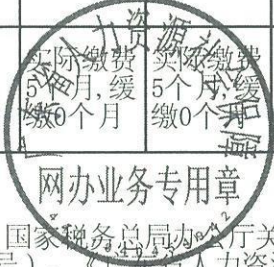 实际缴费
5个月,缓
缴0个月
实际缴费
5个月,缓
缴0个月
省人力资源社会保障
网办业务专用章
国家税务总局办公厅关
号)、
人力资